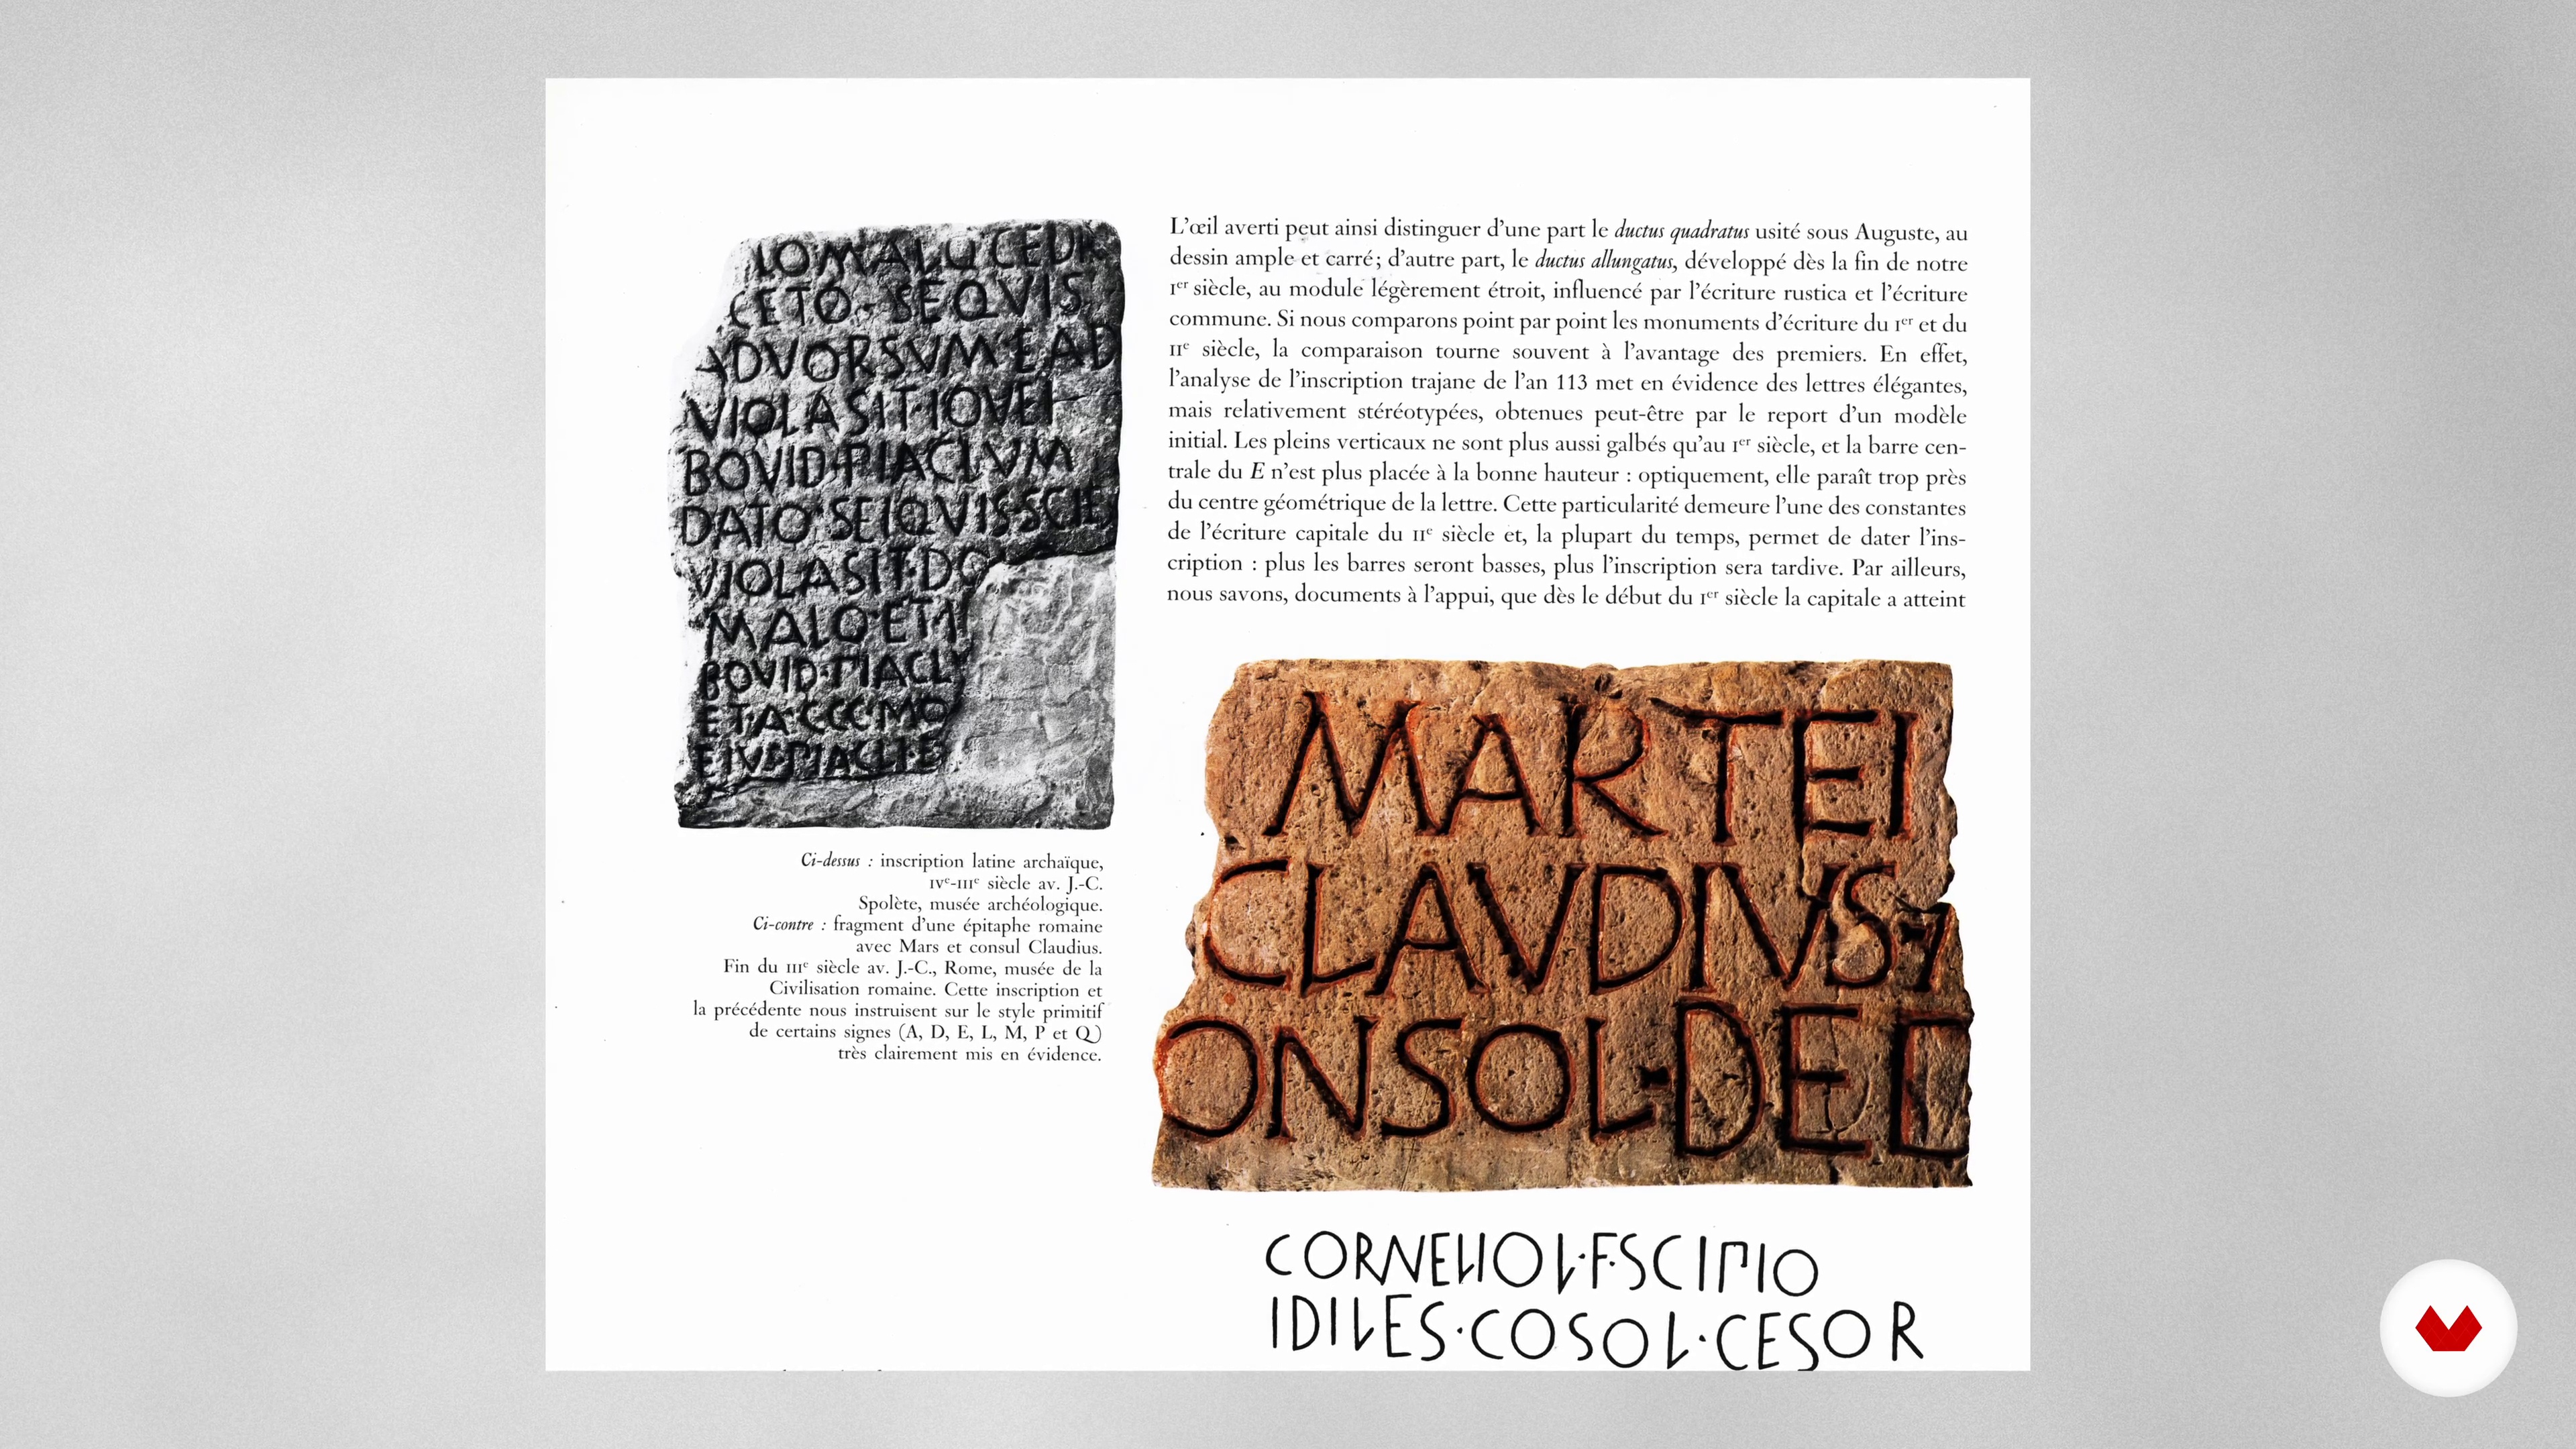 IOMALUCEUR
CETO · SEQVIS
ADVORSVM EAD
VIOLASIT·IOVEI
BOVID·PIACLVM
DATO·SEIQVISSCIE
VIOLASIT·DO
MALO·ET
BOVID·PIACL
ET·A·CCC·MO
EIVS PIACLI E
Ci-dessus : inscription latine archaïque,
IVe-IIIe siècle av. J.-C.
Spolète, musée archéologique.
Ci-contre : fragment d’une épitaphe romaine
avec Mars et consul Claudius.
Fin du IIIe siècle av. J.-C., Rome, musée de la
Civilisation romaine. Cette inscription et
la précédente nous instruisent sur le style primitif
de certains signes (A, D, E, L, M, P et Q)
très clairement mis en évidence.
L’œil averti peut ainsi distinguer d’une part le ductus quadratus usité sous Auguste, au
dessin ample et carré; d’autre part, le ductus allungatus, développé dès la fin de notre
Ier siècle, au module légèrement étroit, influencé par l’écriture rustica et l’écriture
commune. Si nous comparons point par point les monuments d’écriture du Ier et du
IIe siècle, la comparaison tourne souvent à l’avantage des premiers. En effet,
l’analyse de l’inscription trajane de l’an 113 met en évidence des lettres élégantes,
mais relativement stéréotypées, obtenues peut-être par le report d’un modèle
initial. Les pleins verticaux ne sont plus aussi galbés qu’au Ier siècle, et la barre cen-
trale du E n’est plus placée à la bonne hauteur : optiquement, elle paraît trop près
du centre géométrique de la lettre. Cette particularité demeure l’une des constantes
de l’écriture capitale du IIe siècle et, la plupart du temps, permet de dater l’ins-
cription : plus les barres seront basses, plus l’inscription sera tardive. Par ailleurs,
nous savons, documents à l’appui, que dès le début du Ier siècle la capitale a atteint
MARTEI
CLAVDIVS·
ONSOL·DED
CORNELIO L·F·SCIPIO
IDILES·COSOL·CESOR